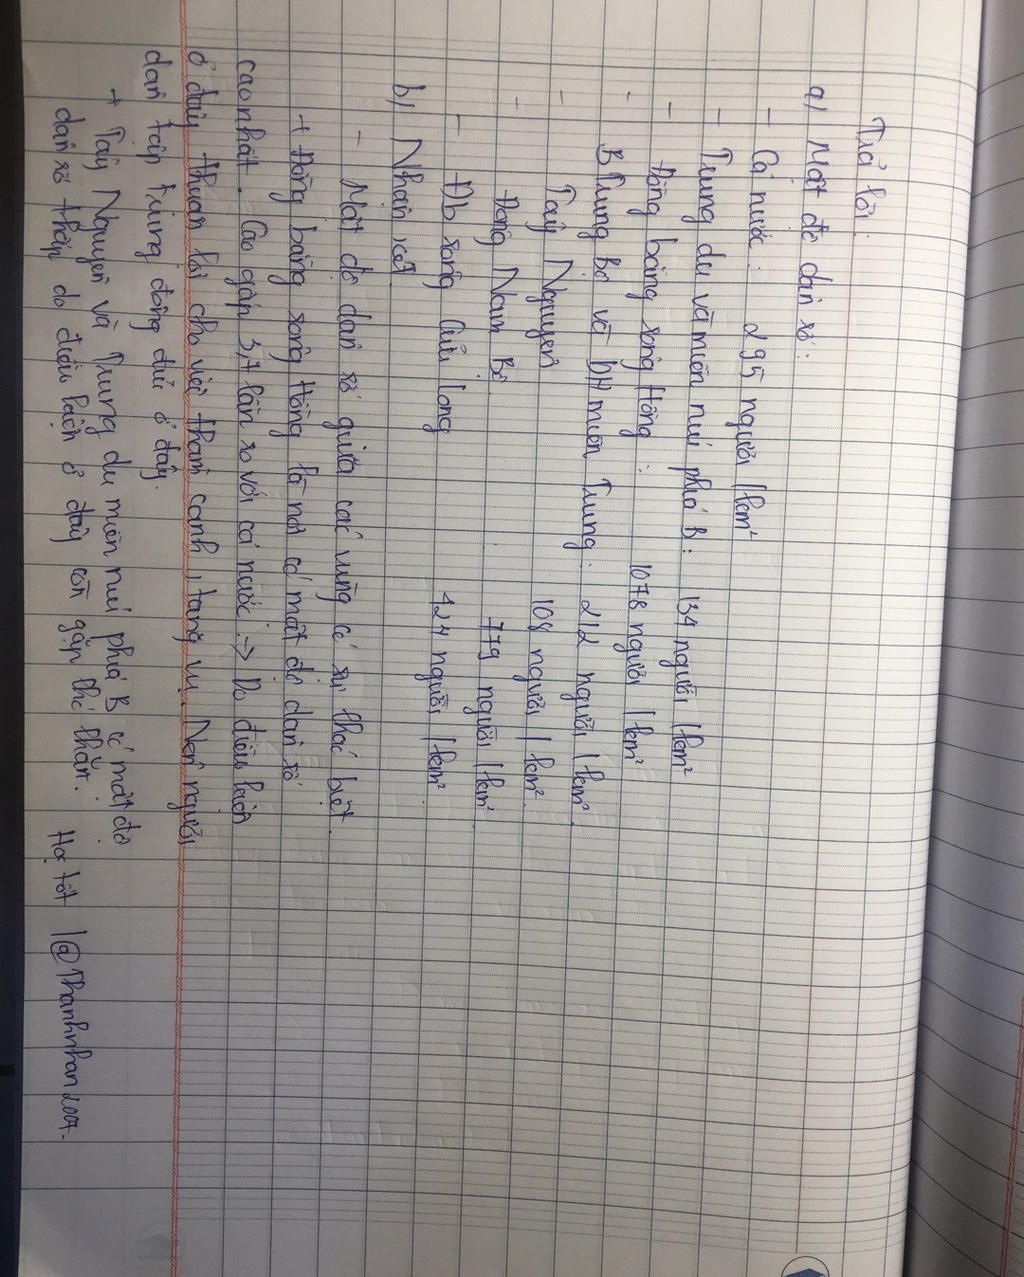 Trả lời:
a) Mật độ dân số:
- Cả nước: 295 người/km²
- Trung du và miền núi phía B: 134 người/km²
- Đồng bằng sông Hồng: 1078 người/km²
- B Trung Bộ và DH miền Trung: 212 người/km²
- Tây Nguyên 108 người/km²
- Đông Nam Bộ 779 người/km²
- Đb sông Cửu Long 424 người/km²
b) Nhận xét
- Mật độ dân số giữa các vùng có sự khác biệt
+ Đồng bằng sông Hồng là nơi có mật độ dân số
cao nhất. Cao gấp 3,7 lần so với cả nước. -> Do điều kiện
ở đây thuận lợi cho việc thâm canh, tăng vụ. Nên người
dân tập trung đông đủ ở đây.
+ Tây Nguyên và Trung du miền núi phía B có mật độ
dân số thấp do điều kiện ở đây còn gặp khó khăn. Học tốt |@Thanhnhan2007.